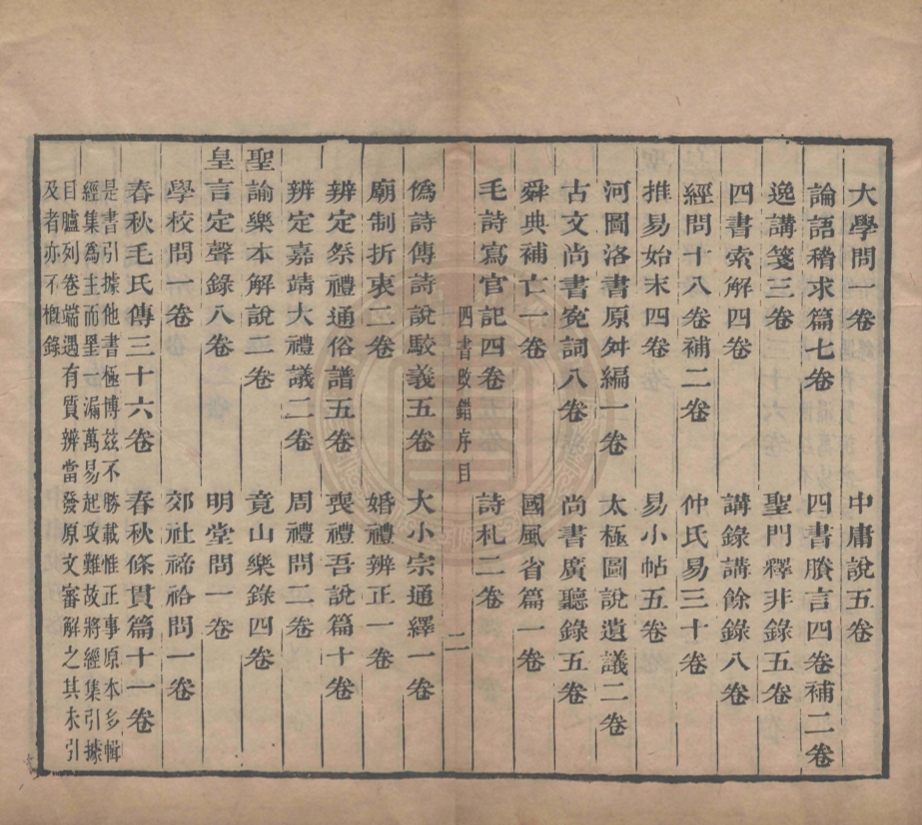 大學問一卷　中庸說五卷
論語稽求篇七卷　四書賸言四卷補二卷
逸講箋三卷　聖門釋非錄五卷
四書索解四卷　講錄講餘錄八卷
經問十八卷補二卷　仲氏易三十卷
推易始末四卷　易小帖五卷
河圖洛書原舛編一卷　太極圖說遺議二卷
古文尚書冤詞八卷　尚書廣聽錄五卷
舜典補亡一卷　國風省篇一卷
毛詩寫官記四卷　詩札二卷
四書改錯序目　二
僞詩傳詩說駁義五卷　大小宗通繹一卷
廟制折衷二卷　婚禮辨正一卷
辨定祭禮通俗譜五卷　喪禮吾說篇十卷
辨定嘉靖大禮議二卷　周禮問二卷
聖諭樂本解說二卷　竟山樂錄四卷
皇言定聲錄八卷　明堂問一卷
學校問一卷　郊社禘祫問一卷
春秋毛氏傳三十六卷　春秋條貫篇十一卷
是書引據他書極博茲不勝載惟正事原本多輯
經集爲主而罣一漏萬易起攻難故將經集引據
目臚列卷端遇有質辨當發原文審解之其未引
及者亦不槪錄